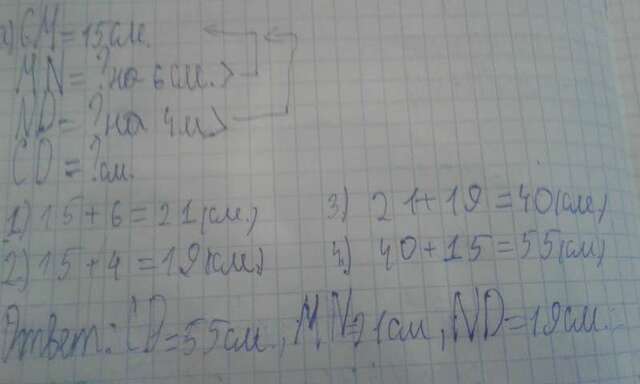 а) CM = 15 см.
MN = ? на 6 см. >
ND = ? на 4 м >
CD = ? см.
1) 15 + 6 = 21 (см)
3) 21 + 19 = 40 (см)
2) 15 + 4 = 19 (см)
4) 40 + 15 = 55 (см)
Ответ: CD = 55 см, MN = 21 см, ND = 19 см.